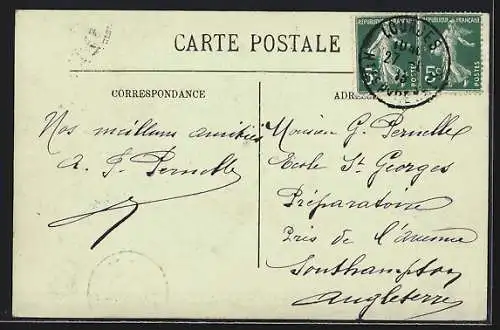 CARTE POSTALE
RÉPUBLIQUE FRANÇAISE
5c
POSTES
5c
POSTES
LOURDES
27
CORRESPONDANCE
ADRESSE
Nos meilleurs amitiés
A. F. Pernelle
Monsieur G. Pernelle
Ecole St Georges
Préparatoire
Près de l'avenue
Southampton
Angleterre